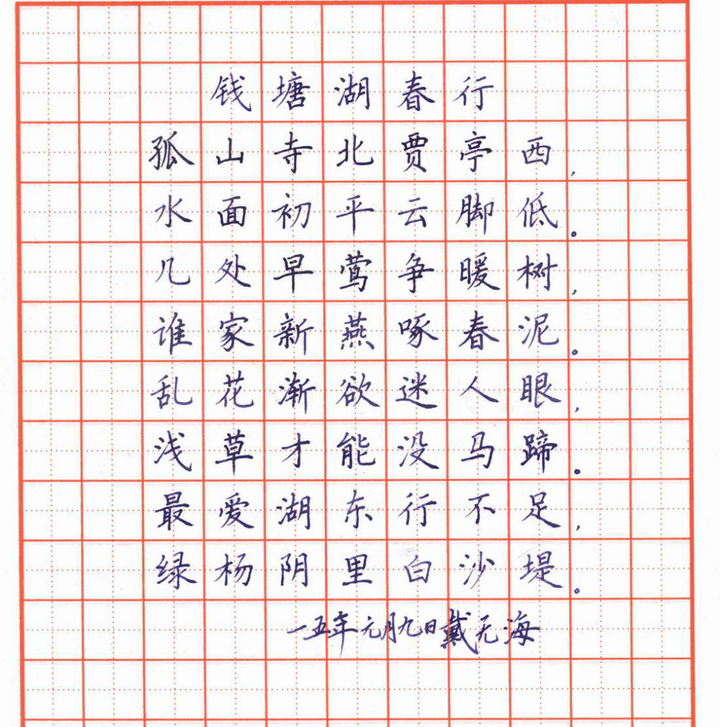 钱塘湖春行
孤山寺北贾亭西，
水面初平云脚低。
几处早莺争暖树，
谁家新燕啄春泥。
乱花渐欲迷人眼，
浅草才能没马蹄。
最爱湖东行不足，
绿杨阴里白沙堤。
一五年元月九日戴无海